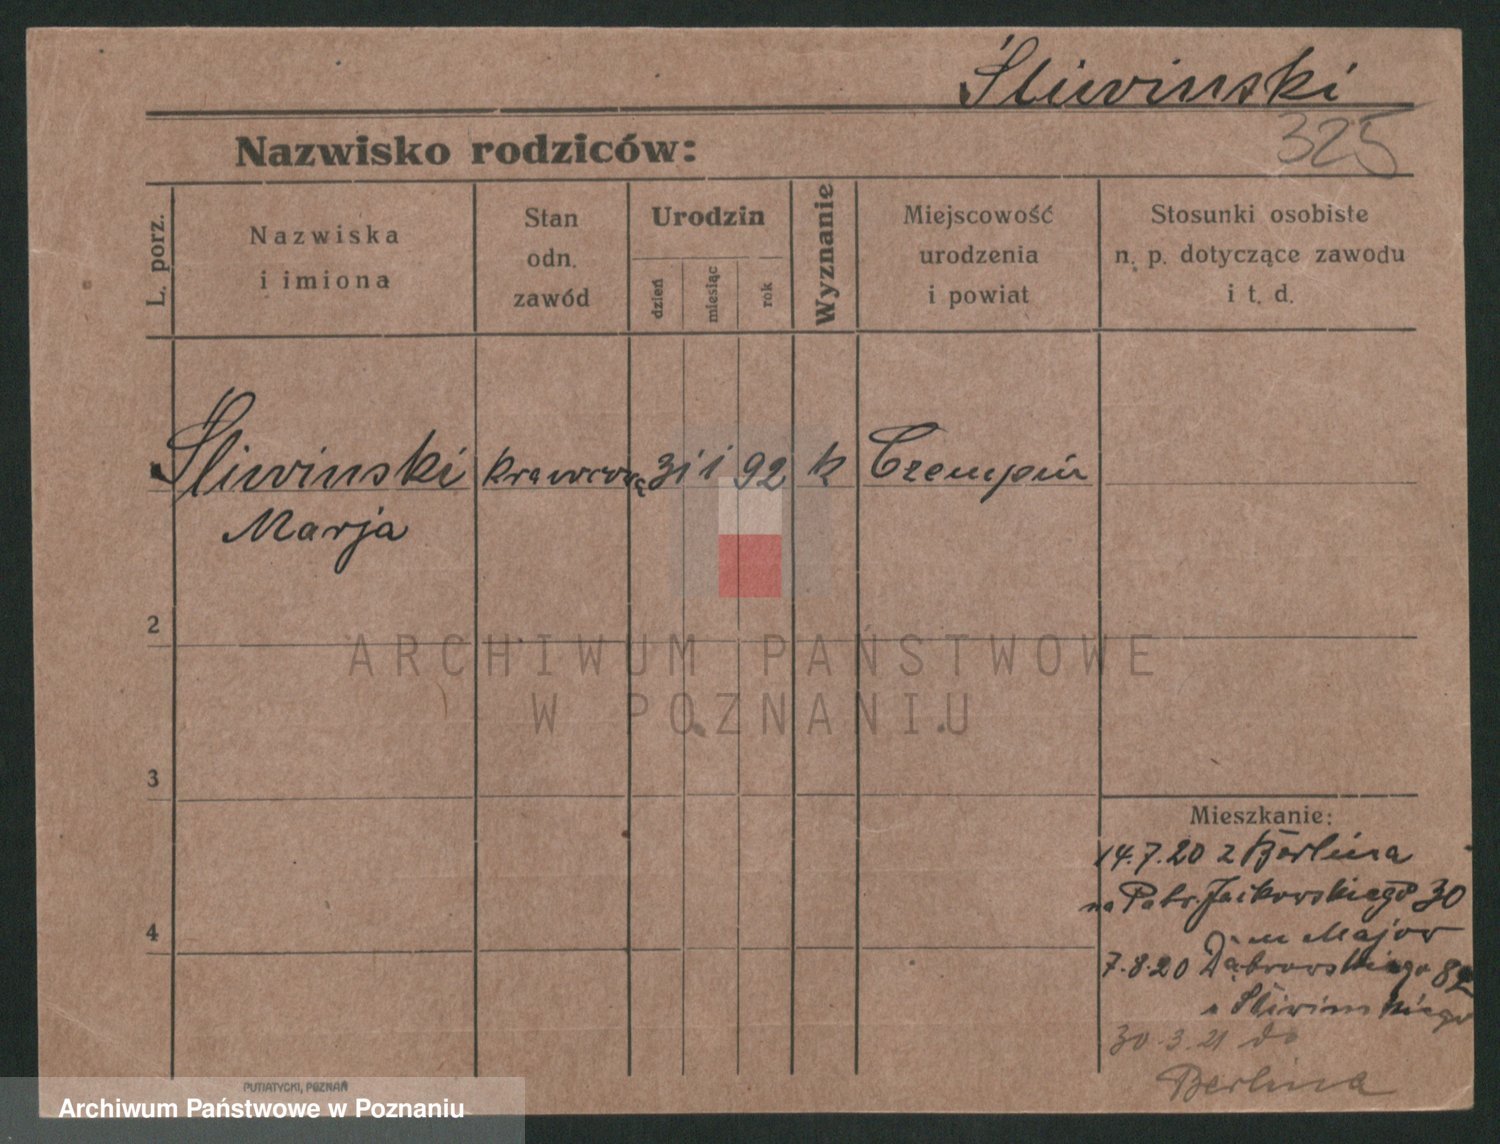 Śliwinski
325
Nazwisko rodziców:
L. porz.
Nazwiska
i imiona
Stan
odn.
zawód
Urodzin
dzień
miesiąc
rok
Wyznanie
Miejscowość
urodzenia
i powiat
Stosunki osobiste
n. p. dotyczące zawodu
i t. d.
Śliwinski krawcowa 31 1 92 k Czempin
Marja
2
3
4
ARCHIWUM PAŃSTWOWE
W POZNANIU
Mieszkanie:
14.7.20 z Berlina
na Patr. Jackowskiego 30
Major
7.8.20 Dąbrowskiego
u Śliwinskiego
30.3.21 do
Berlina
PUTIATYCKI, POZNAŃ
Archiwum Państwowe w Poznaniu